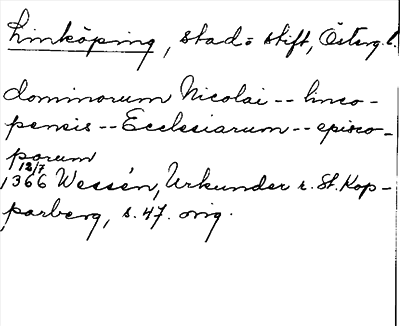 Linköping, stad o stift, Österg. l.
dominorum Nicolai -- linco-
pensis -- Ecclesiarum -- episco-
porum
12/7
1366 Wessén, Urkunder r. St. Kop-
parberg, s. 47. orig.